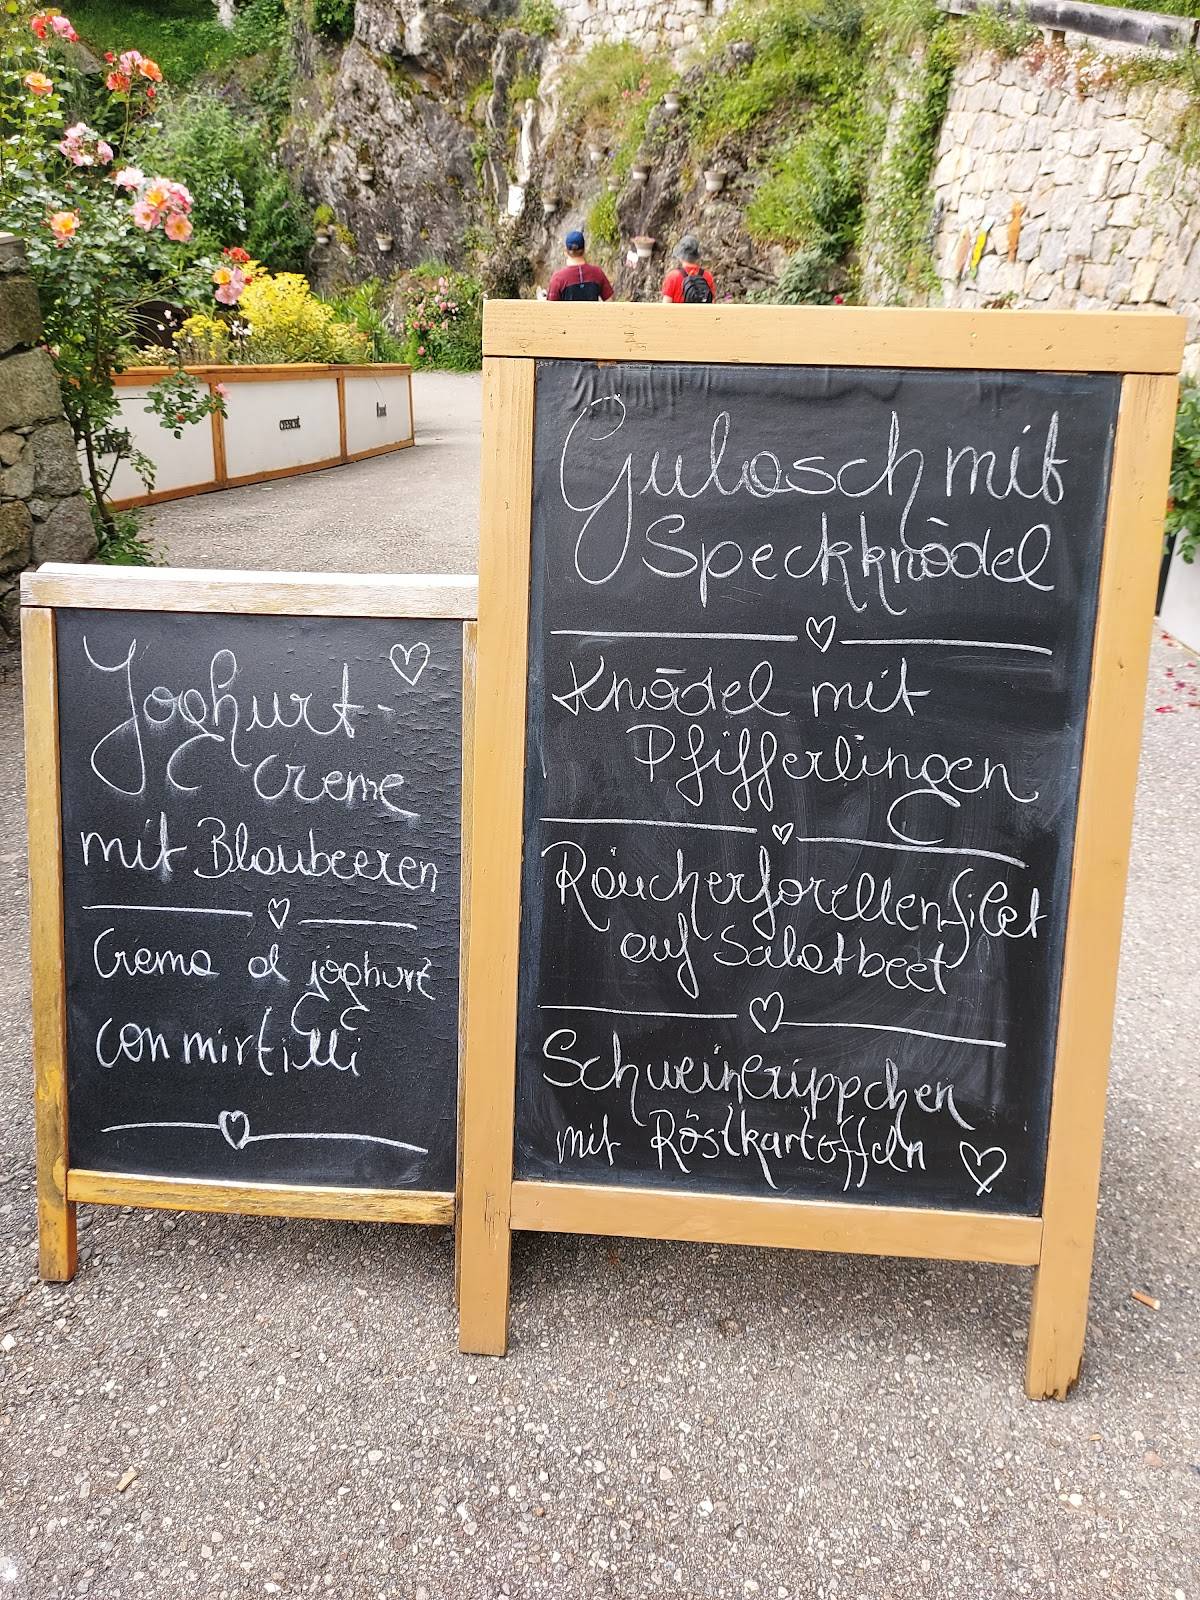 Joghurt-
creme
mit Blaubeeren
Crema al joghurt
con mirtilli
Gulasch mit
Speckknödel
Knödel mit
Pfifferlingen
Räucherforellenfilet
auf Salatbeet
Schweinerippchen
mit Röstkartoffeln